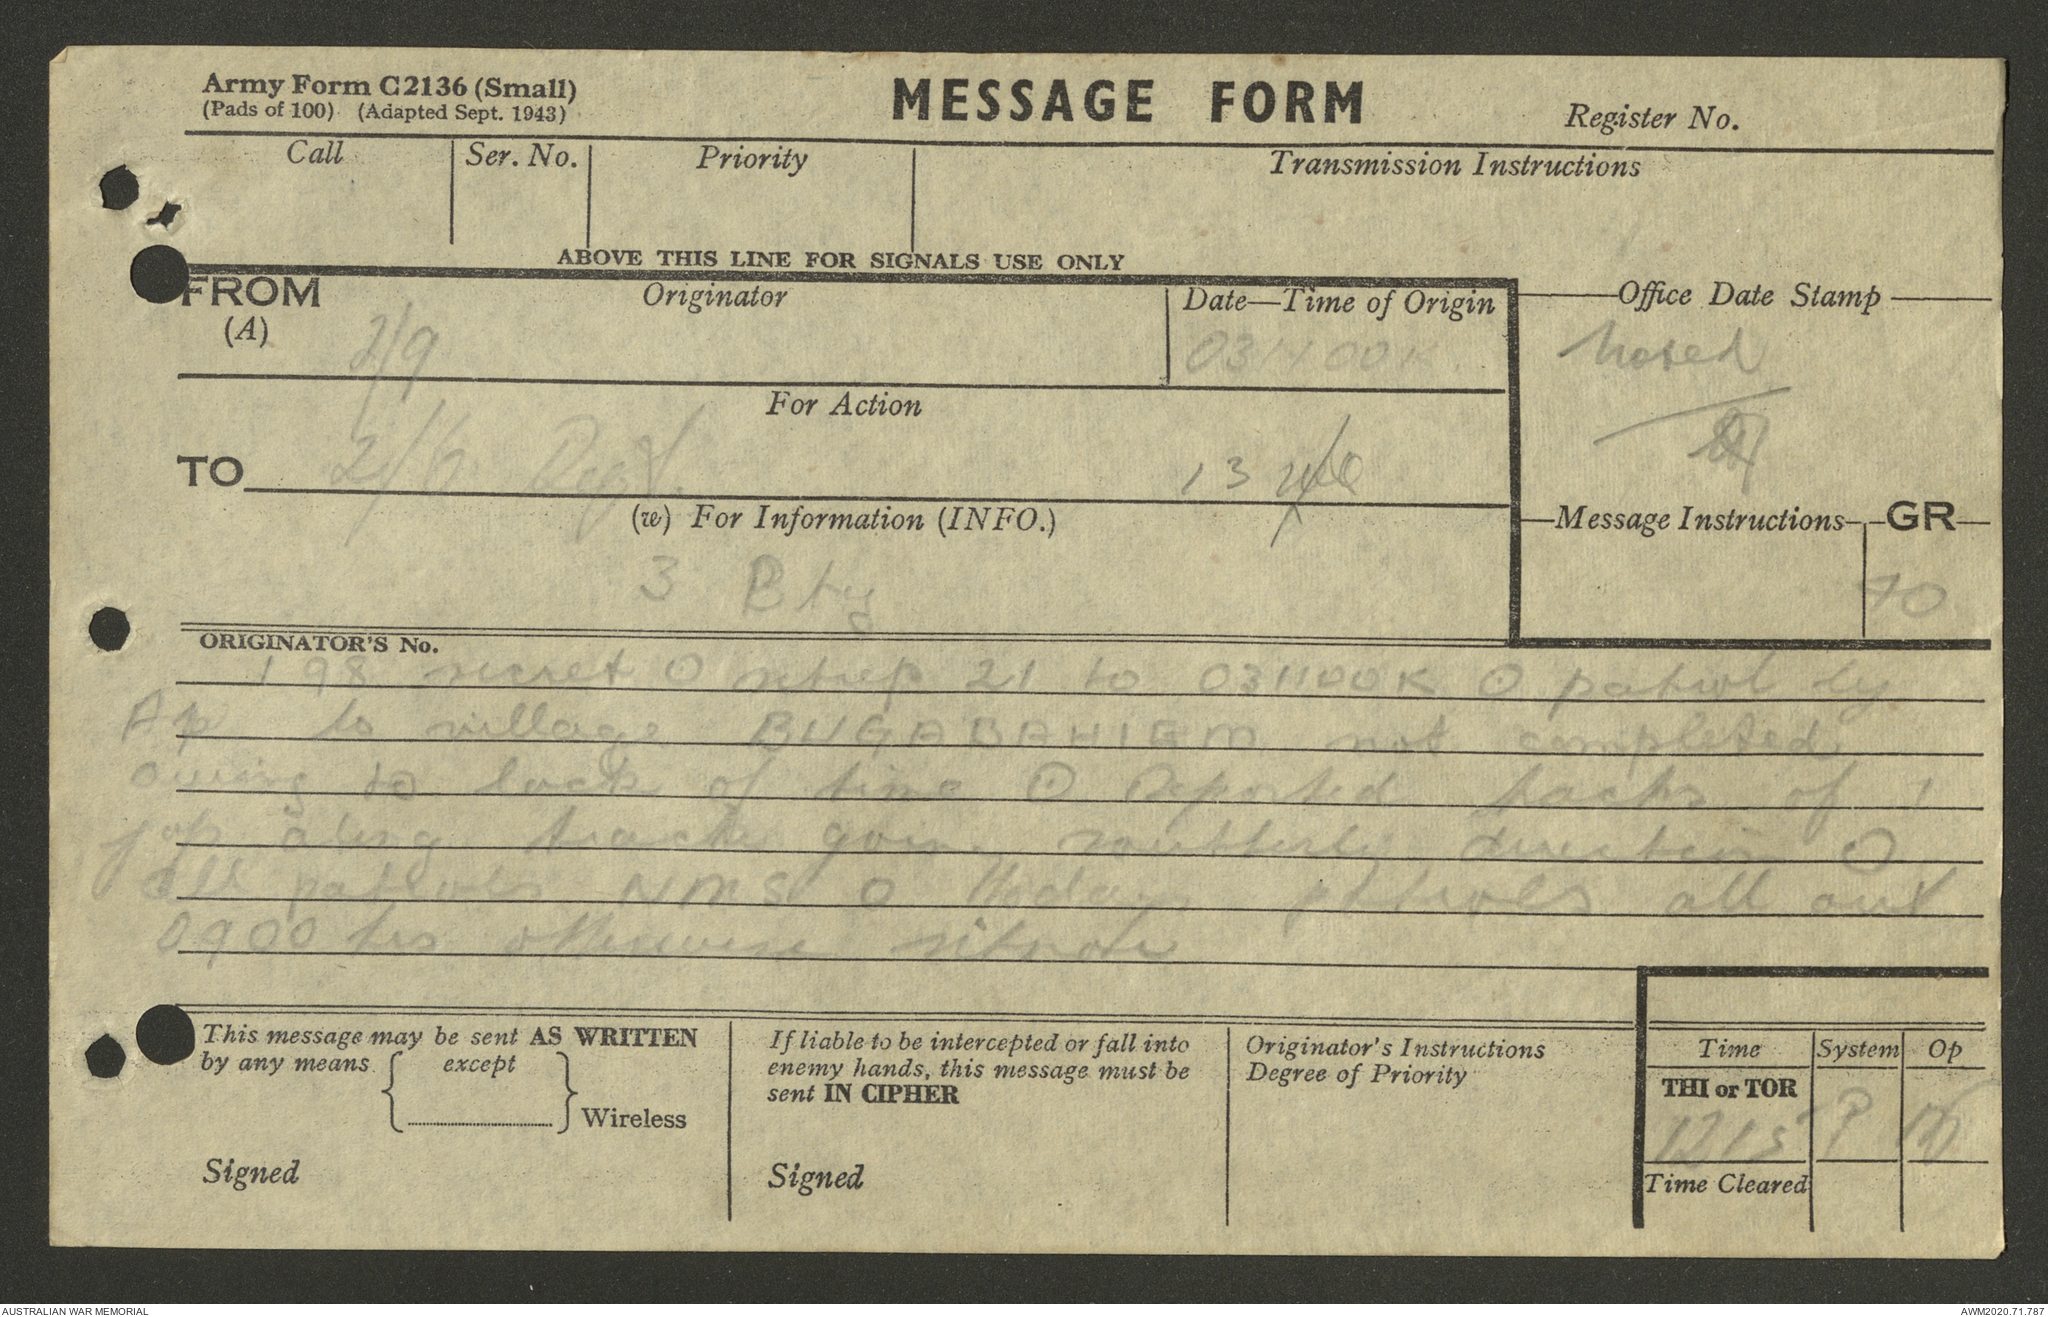 Army Form C2136 (Small)
(Pads of 100) (Adapted Sept. 1943)
MESSAGE FORM
Register No.
Call
Ser. No.
Priority
Transmission Instructions
ABOVE THIS LINE FOR SIGNALS USE ONLY
FROM
(A)
Originator
2/9
Date—Time of Origin
031100K
Office Date Stamp
Noted
For Action
TO
2/6 Regt.
13
(w) For Information (INFO.)
3 Bty
Message Instructions
GR
70
ORIGINATOR'S No.
198 secret O sitrep 21 to 031100K O patrol by
Ap to village BUGABAHIEM not completed
owing to lack of time O Reported tracks of 1
jap along track going southerly direction O
all patrols NMS O Today patrols all out
0900 hrs otherwise sitnor
This message may be sent AS WRITTEN
by any means
except
Wireless
Signed
If liable to be intercepted or fall into
enemy hands, this message must be
sent IN CIPHER
Signed
Originator's Instructions
Degree of Priority
Time
System
Op
THI or TOR
1215
P
Time Cleared
AUSTRALIAN WAR MEMORIAL
AWM2020.71.787